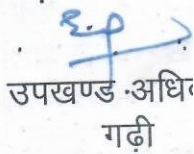 उपखण्ड अधि
गढ़ी